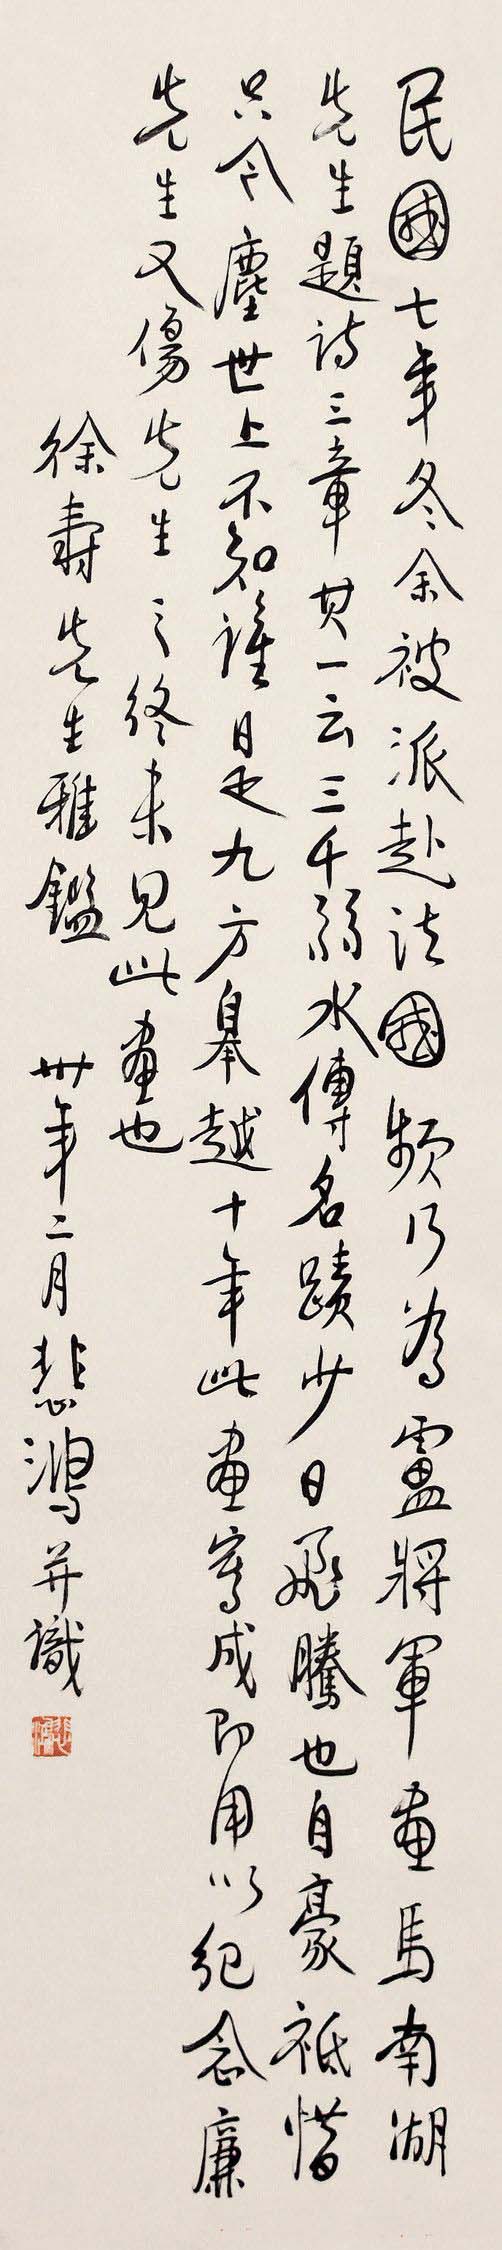 民國七年冬余被派赴法國頻行為盧將軍畫馬南湖
先生題詩三章其一云三千弱水傳名蹟少日飛騰也自豪祇惜
只今塵世上不知誰是九方皋越十年此畫寫成即用以紀念廉
先生又傷先生之終未見此畫也
徐壽先生雅鑑 卅年二月悲鴻并識
悲鴻